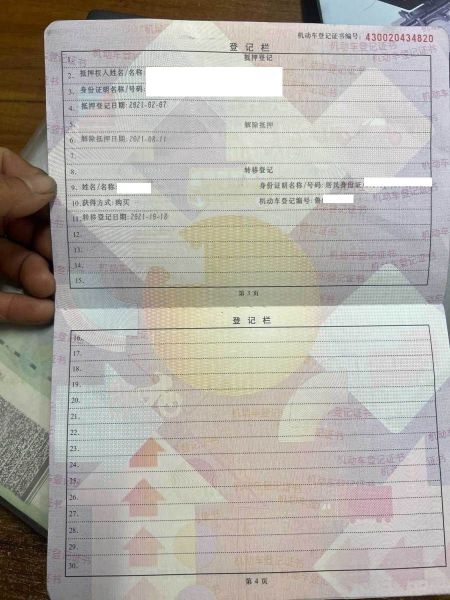 机动车登记证书编号: 430020434820
登 记 栏
1. 抵押登记
2. 抵押权人姓名/名称:
3. 身份证明名称/号码:
4. 抵押登记日期:2021-02-07
5. 解除抵押
6. 解除抵押日期:2021-08-11
7.
8. 转移登记
9. 姓名/名称: 身份证明名称/号码:居民身份证/
10. 获得方式:购买 机动车登记编号:鲁
11. 转移登记日期:2021-10-10
12.
13.
14.
15.
第 3 页
登 记 栏
16.
17.
18.
19.
20.
21.
22.
23.
24.
25.
26.
27.
28.
29.
30.
第 4 页